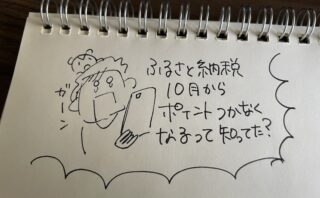 ふるさと納税
10月から
ポイントつかなく
なるって知ってた?
ガーン